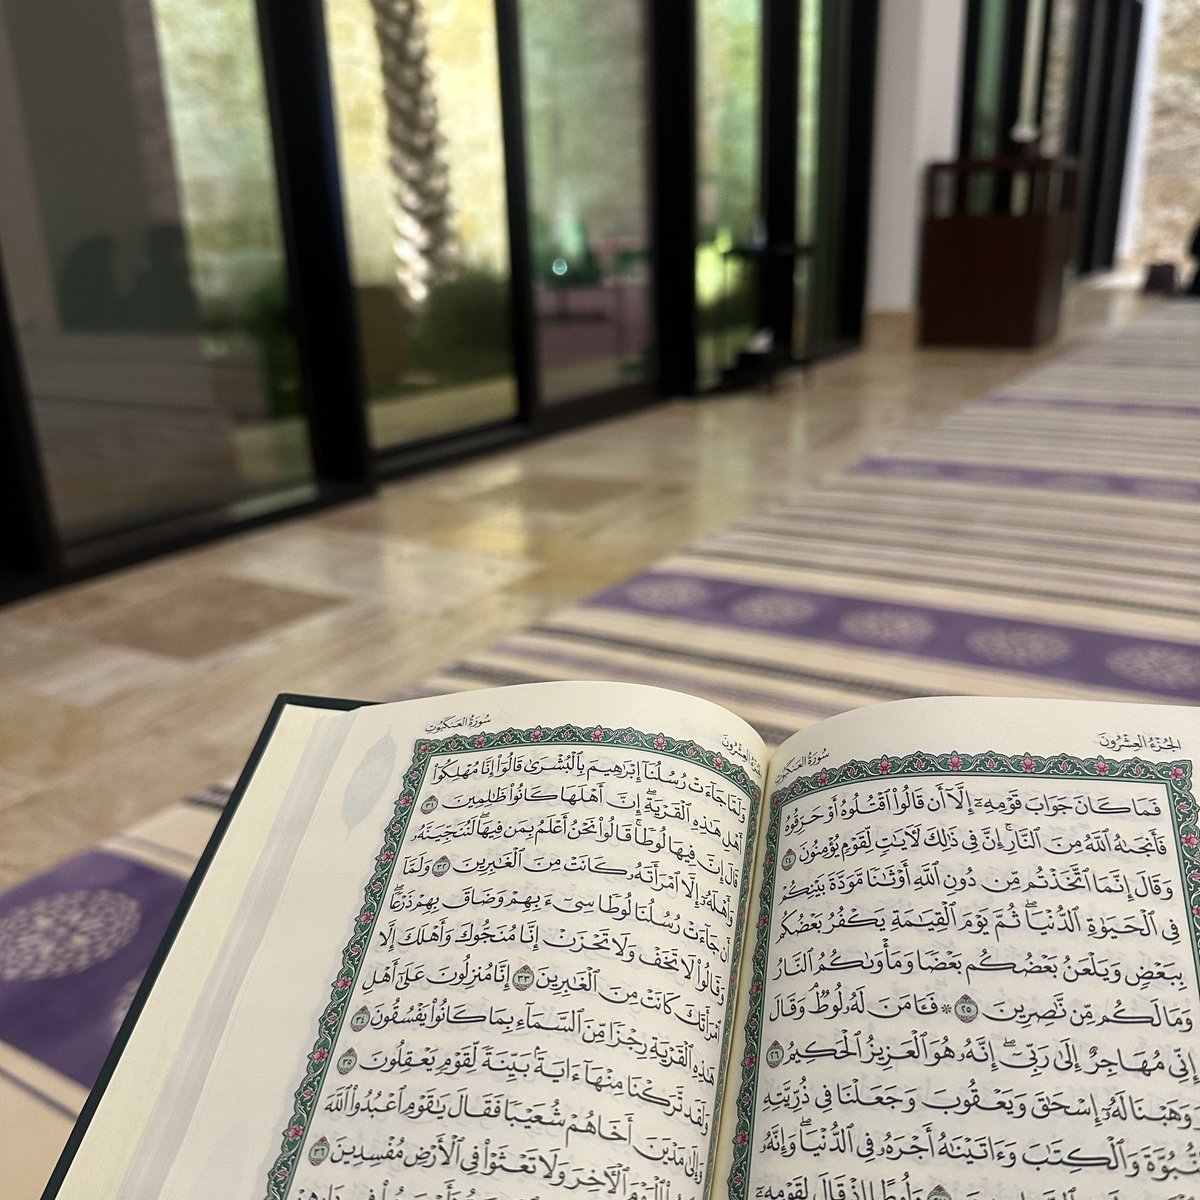 الجُزْءُ العِشْرُونَ
سُورَةُ العَنكَبُوتِ
فَمَا كَانَ جَوَابَ قَوْمِهِۦٓ إِلَّآ أَن قَالُوا۟ ٱقْتُلُوهُ أَوْ حَرِّقُوهُ
فَأَنجَىٰهُ ٱللَّهُ مِنَ ٱلنَّارِ ۚ إِنَّ فِى ذَٰلِكَ لَءَايَٰتٍ لِّقَوْمٍ يُؤْمِنُونَ ٢٤
وَقَالَ إِنَّمَا ٱتَّخَذْتُم مِّن دُونِ ٱللَّهِ أَوْثَٰنًا مَّوَدَّةَ بَيْنِكُمْ
فِى ٱلْحَيَوٰةِ ٱلدُّنْيَا ۖ ثُمَّ يَوْمَ ٱلْقِيَٰمَةِ يَكْفُرُ بَعْضُكُم
بِبَعْضٍ وَيَلْعَنُ بَعْضُكُم بَعْضًا وَمَأْوَىٰكُمُ ٱلنَّارُ
وَمَا لَكُم مِّن نَّٰصِرِينَ ٢٥ * فَـَٔامَنَ لَهُۥ لُوطٌ ۘ وَقَالَ
إِنِّى مُهَاجِرٌ إِلَىٰ رَبِّىٓ ۖ إِنَّهُۥ هُوَ ٱلْعَزِيزُ ٱلْحَكِيمُ ٢٦
وَوَهَبْنَا لَهُۥٓ إِسْحَٰقَ وَيَعْقُوبَ وَجَعَلْنَا فِى ذُرِّيَّتِهِ
ٱلنُّبُوَّةَ وَٱلْكِتَٰبَ وَءَاتَيْنَٰهُ أَجْرَهُۥ فِى ٱلدُّنْيَا ۖ وَإِنَّهُۥ
وَلُوطًا إِذْ قَالَ لِقَوْمِهِۦٓ
الجُزْءُ العِشْرُونَ
سُورَةُ العَنكَبُوتِ
وَلَمَّا جَآءَتْ رُسُلُنَآ إِبْرَٰهِيمَ بِٱلْبُشْرَىٰ قَالُوٓا۟ إِنَّا مُهْلِكُوٓا۟
أَهْلِ هَٰذِهِ ٱلْقَرْيَةِ ۖ إِنَّ أَهْلَهَا كَانُوا۟ ظَٰلِمِينَ ٣١
قَالَ إِنَّ فِيهَا لُوطًا ۚ قَالُوا۟ نَحْنُ أَعْلَمُ بِمَن فِيهَا ۖ لَنُنَجِّيَنَّهُۥ
وَأَهْلَهُۥٓ إِلَّا ٱمْرَأَتَهُۥ كَانَتْ مِنَ ٱلْغَٰبِرِينَ ٣٢ وَلَمَّآ
أَن جَآءَتْ رُسُلُنَا لُوطًا سِىٓءَ بِهِمْ وَضَاقَ بِهِمْ ذَرْعًا ۖ
وَقَالُوا۟ لَا تَخَفْ وَلَا تَحْزَنْ ۖ إِنَّا مُنَجُّوكَ وَأَهْلَكَ إِلَّا
ٱمْرَأَتَكَ كَانَتْ مِنَ ٱلْغَٰبِرِينَ ٣٣ إِنَّا مُنزِلُونَ عَلَىٰٓ أَهْلِ
هَٰذِهِ ٱلْقَرْيَةِ رِجْزًا مِّنَ ٱلسَّمَآءِ بِمَا كَانُوا۟ يَفْسُقُونَ ٣٤
وَلَقَد تَّرَكْنَا مِنْهَآ ءَايَةًۢ بَيِّنَةً لِّقَوْمٍ يَعْقِلُونَ ٣٥
وَإِلَىٰ مَدْيَنَ أَخَاهُمْ شُعَيْبًا فَقَالَ يَٰقَوْمِ ٱعْبُدُوا۟ ٱللَّهَ
ٱلْيَوْمَ ٱلْءَاخِرَ وَلَا تَعْثَوْا۟ فِى ٱلْأَرْضِ مُفْسِدِينَ ٣٦